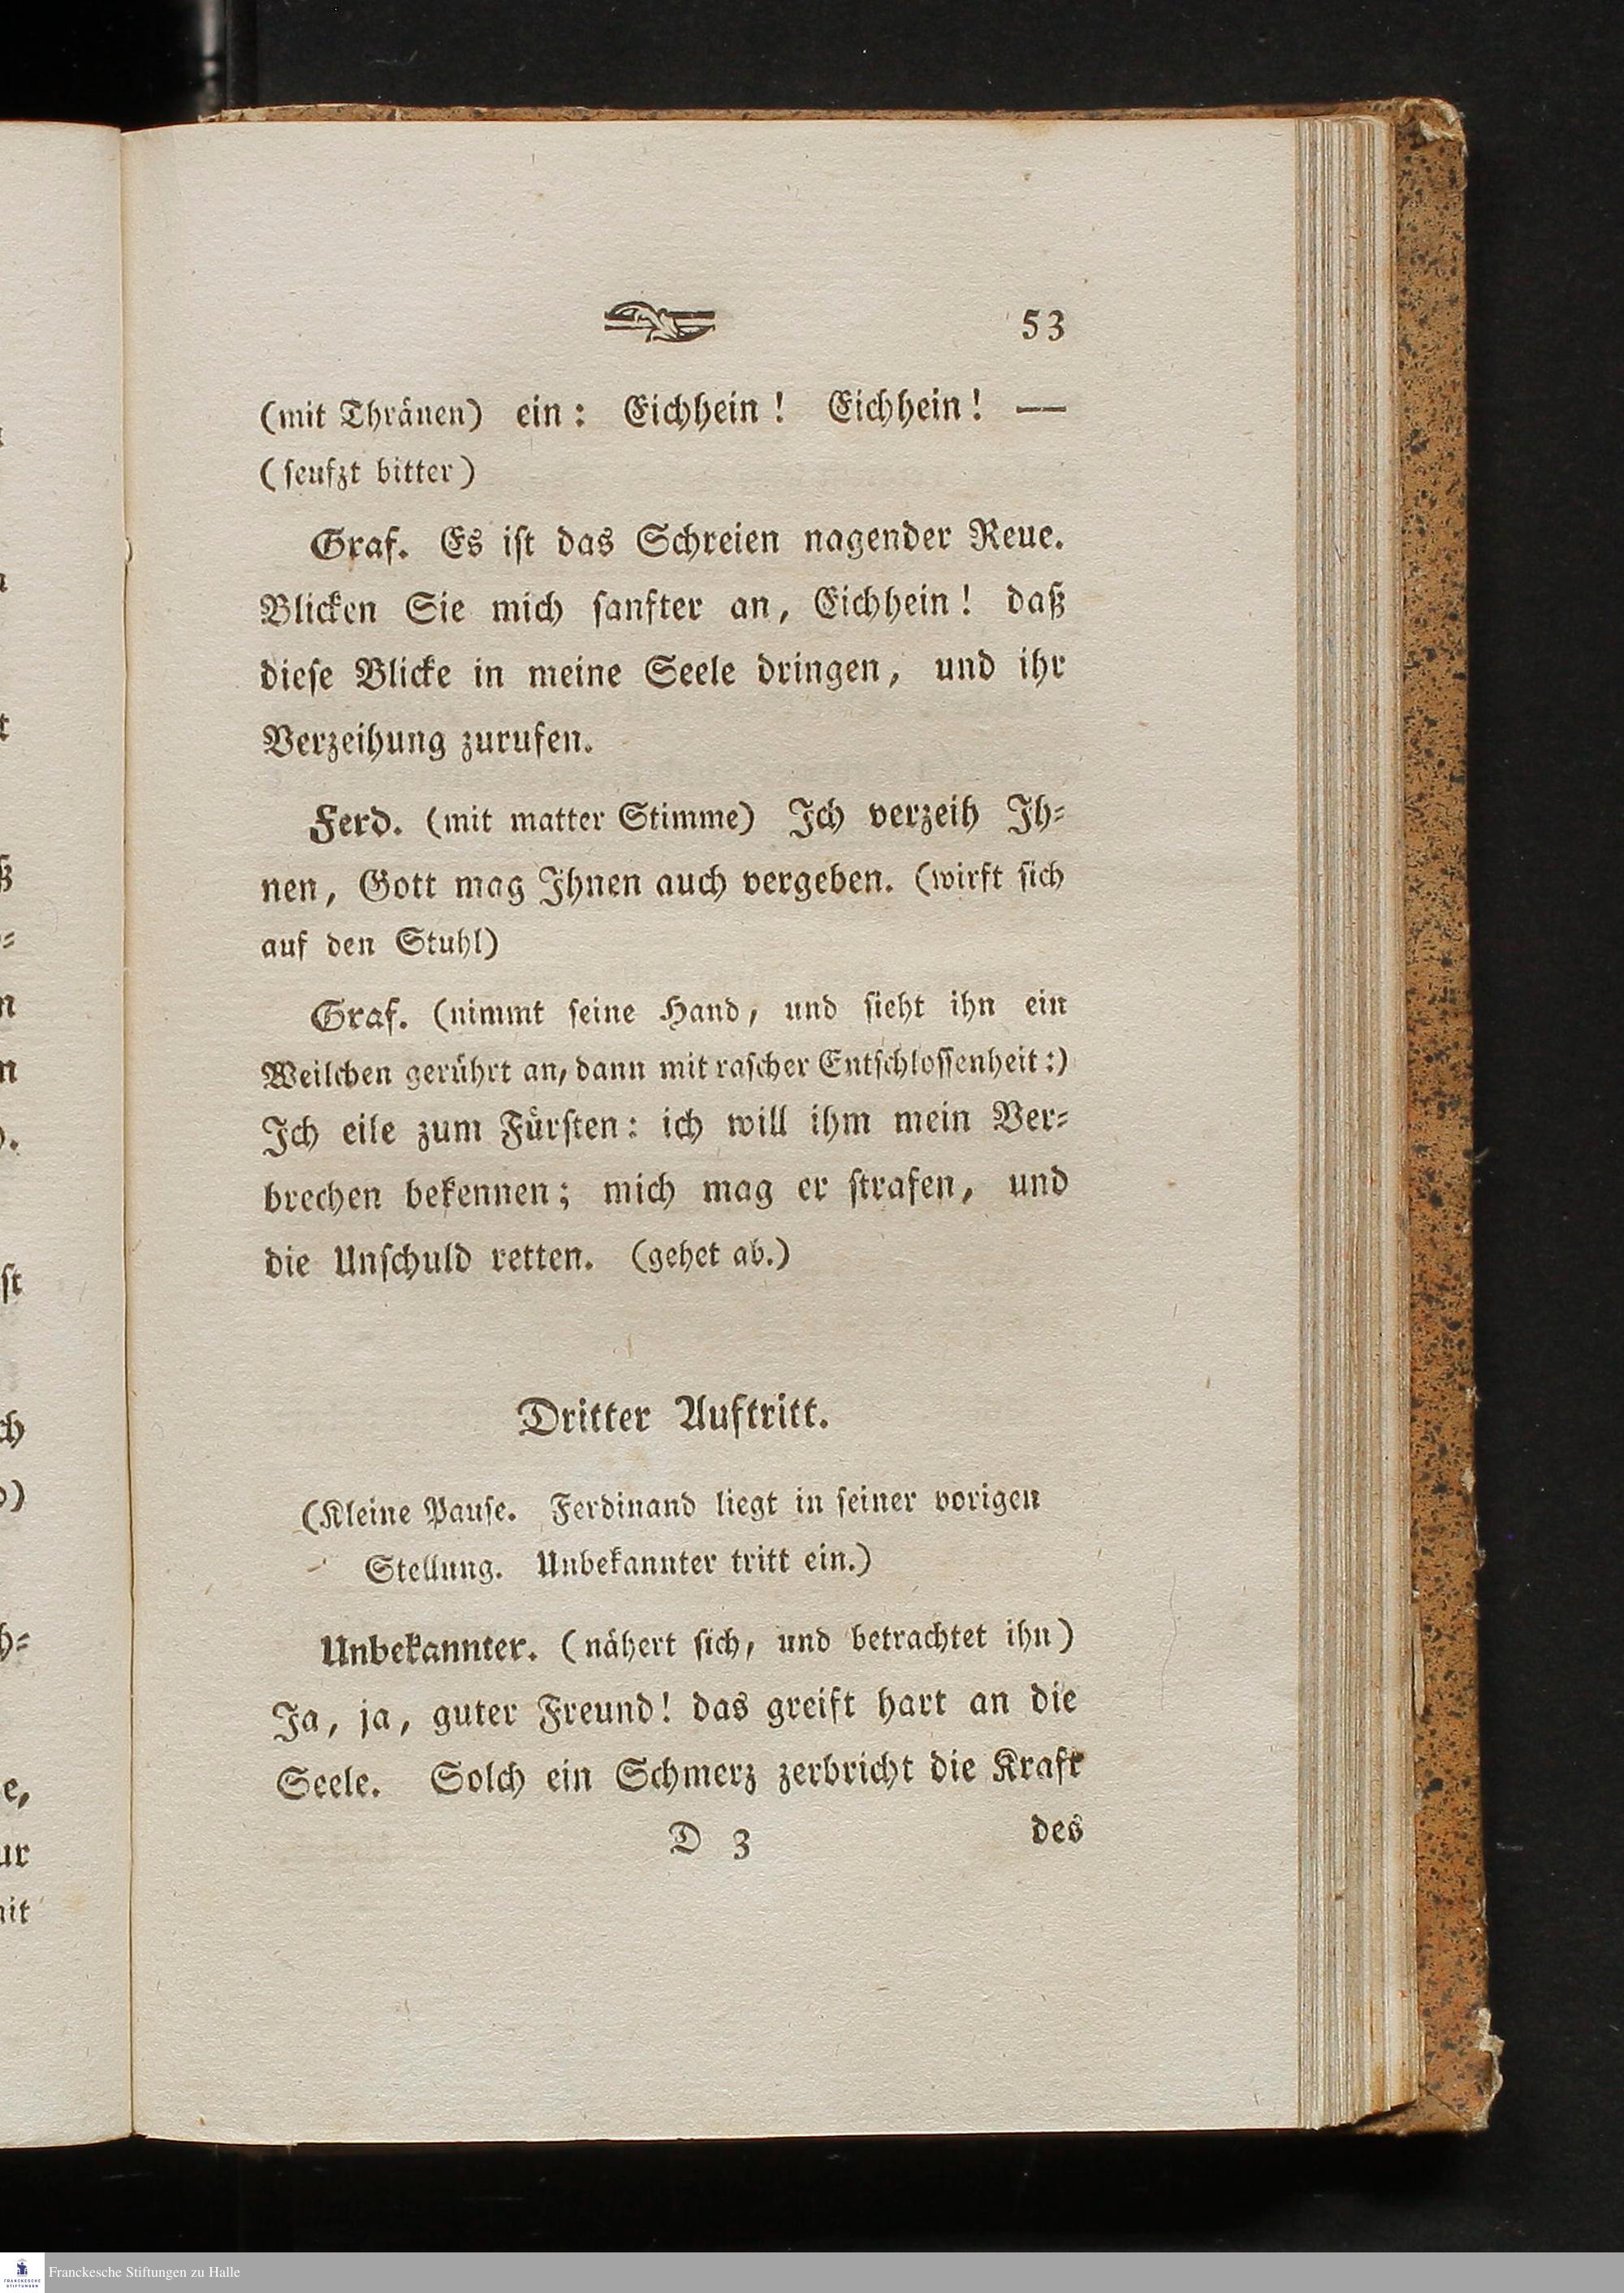 53
(mit Thränen) ein: Eichhein! Eichhein! —
(ſeufzt bitter)
Graf. Es iſt das Schreien nagender Reue.
Blicken Sie mich ſanfter an, Eichhein! daß
dieſe Blicke in meine Seele dringen, und ihr
Verzeihung zurufen.
Ferd. (mit matter Stimme) Ich verzeih Ih⸗
nen, Gott mag Ihnen auch vergeben. (wirft ſich
auf den Stuhl)
Graf. (nimmt ſeine Hand, und ſieht ihn ein
Weilchen gerührt an, dann mit raſcher Entſchloſſenheit:)
Ich eile zum Fürſten: ich will ihm mein Ver⸗
brechen bekennen; mich mag er ſtrafen, und
die Unſchuld retten. (gehet ab.)
Dritter Auftritt.
(Kleine Pauſe. Ferdinand liegt in ſeiner vorigen
Stellung. Unbekannter tritt ein.)
Unbekannter. (nähert ſich, und betrachtet ihn)
Ja, ja, guter Freund! das greift hart an die
Seele. Solch ein Schmerz zerbricht die Kraft
D 3 des
Franckesche Stiftungen zu Halle